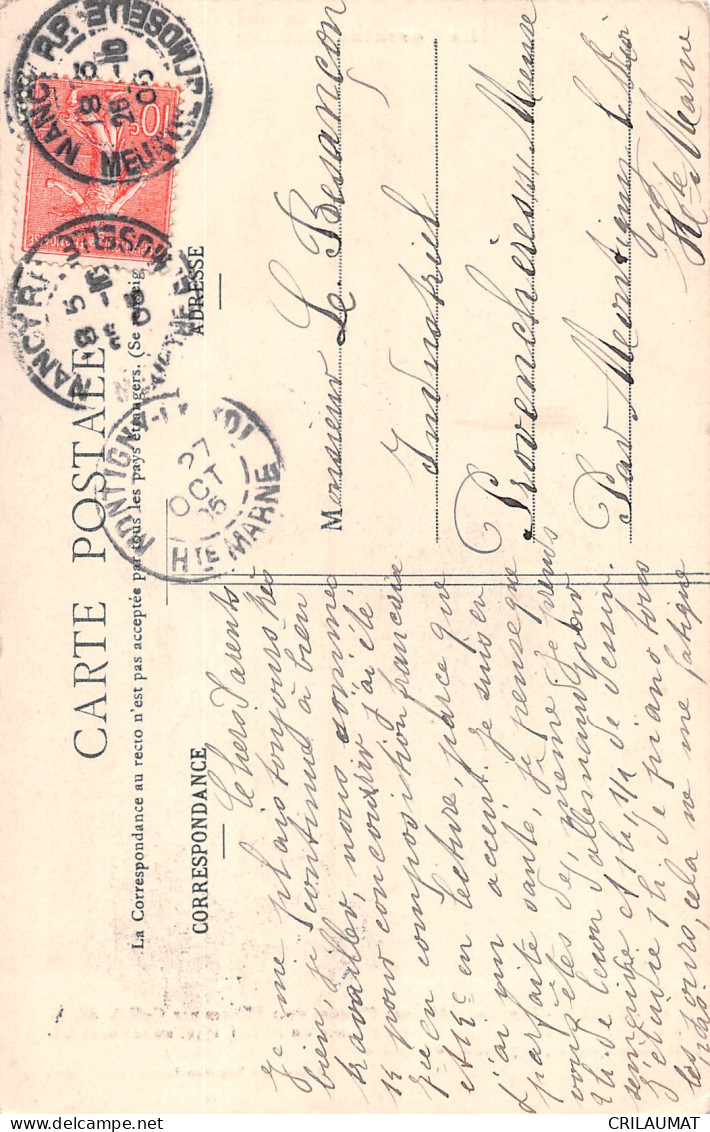 CARTE POSTALE
La Correspondance au recto n'est pas acceptée par tous les pays étrangers. (Se renseig
CORRESPONDANCE
ADRESSE
Chers Parents
Je me plais toujours très
bien, je continue à bien
travailler, nous sommes
12 pour concourir j'ai été
reçu composition française
et 12e en lecture, parce que
j'ai un accent. Je suis en
parfaite santé, je pense que
vous êtes de même je prends
2h de leçon d'allemand par
semaine et 1h 1/2 de dessin.
J'étudie 1h de piano tous
les jours, cela ne me fatigue
pas.
Monsieur Le Besançon
Industriel
Provenchères s/ Meuse
Par Montigny le Roi
Hte Marne
NANCY R.P.
MEURTHE ET MOSELLE
8 5
26 -10
05
NANCY R.P.
MOSELLE
8 5
MONTIGNY-LE-ROI
27
OCT
05
HTE MARNE
10c
CRILAUMAT